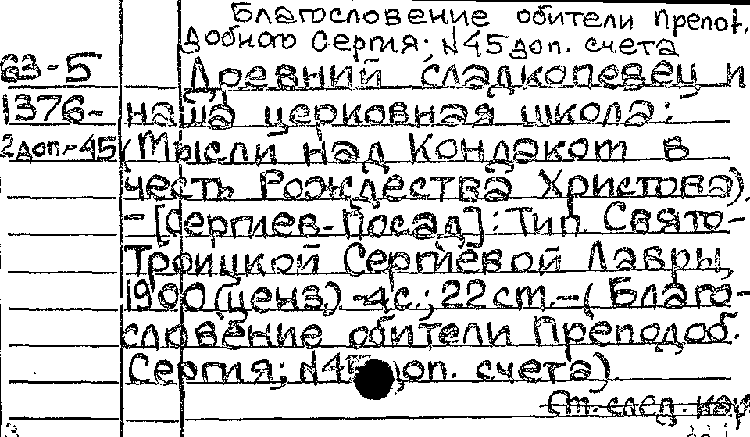 Благословение обители Препо-
добного Сергия; N45 доп. счета
63-5 Древний сладкопевец и
1376- наша церковная школа:
2доп.-45 (Мысли над Кондаком в
честь Рождества Христова).
-[Сергиев-Посад]: Тип. Свято-
Троицкой Сергиевой Лавры,
1900 (ценз). -4с.; 22 см. -(Благо-
словение обители Преподоб.
Сергия; N45 доп. счета)
См. след. кар